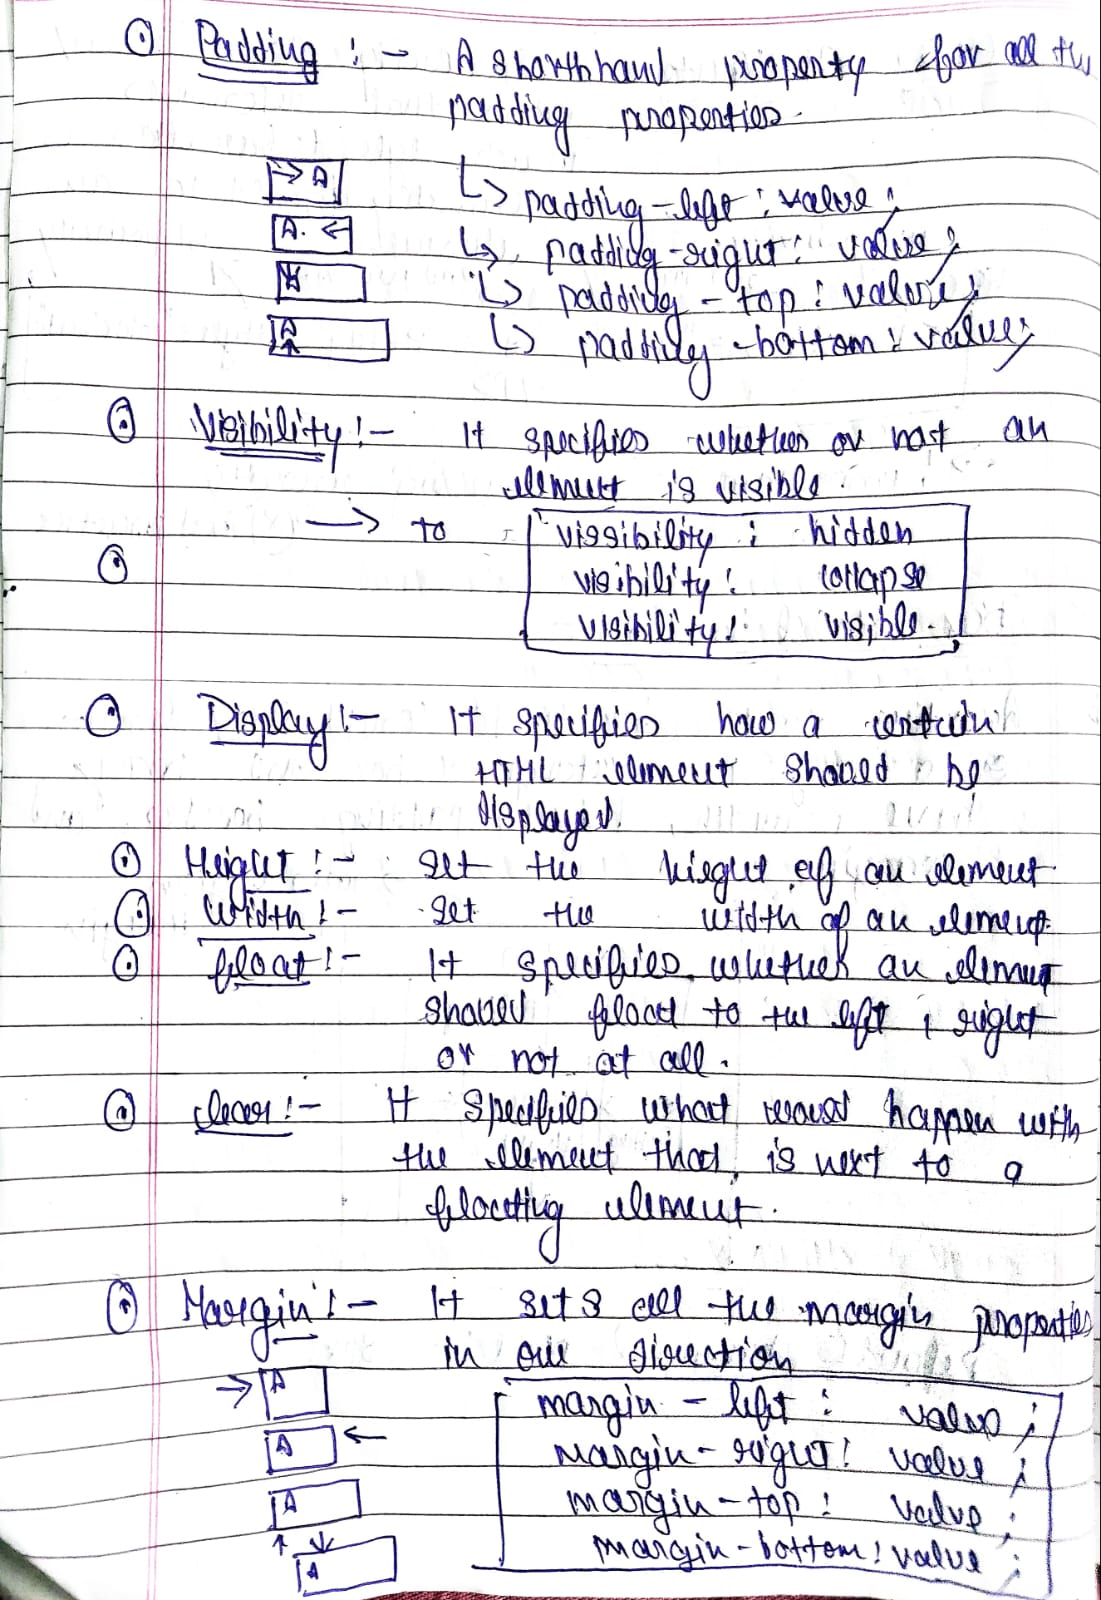 Padding :- A shorthhand property for all the
padding properties.
→ A
↳ padding-left : value ;
A. ←
↳ padding-right : value ;
↳ padding - top : value ;
A
↳ padding -bottom : value ;
Visibility :- It specifies whether or not an
element is visible.
→ to
vissibility : hidden
visibility : collapse
visibility : visible.
Display :- It specifies how a certain
HTML element should be
displayed.
Height :- set the hieght of an element
Width :- set the width of an element.
float :- It specifies whether an element
should float to the left , right
or not at all.
clear :- It specifies what would happen with
the element that is next to a
floating element.
Margin :- It sets all the margin properties
in one direction
→ A
margin - left : value ;
A ←
margin - right : value ;
A
margin - top : value ;
A
margin - bottom : value ;